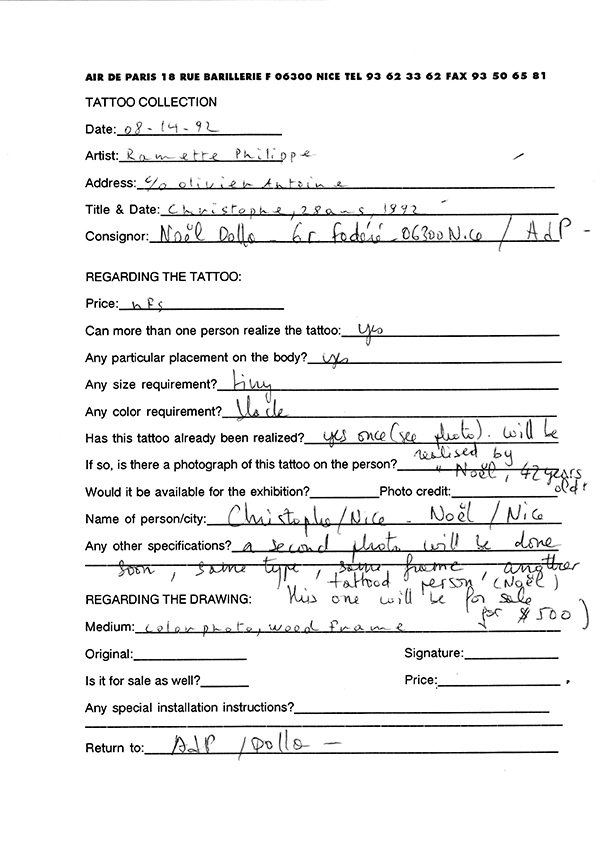 AIR DE PARIS 18 RUE BARILLERIE F 06300 NICE TEL 93 62 33 62 FAX 93 50 65 81
TATTOO COLLECTION
Date: 08-14-92
Artist: Ramette Philippe
Address: c/o olivier Antoine
Title & Date: Christophe, 28 ans, 1992
Consignor: Noël Dolla - 6 r Fodéré - 06300 Nice / AdP -
REGARDING THE TATTOO:
Price: nfs
Can more than one person realize the tattoo: yes
Any particular placement on the body? yes
Any size requirement? tiny
Any color requirement?
Has this tattoo already been realized? yes once (see photo). will be
realised by
If so, is there a photograph of this tattoo on the person? " Noël, 42 years
old"
Would it be available for the exhibition? Photo credit:
Name of person/city: Christophe/Nice - Noël / Nice
Any other specifications? a second photo will be done
soon, same type, same frame another
tattood person (Noël)
REGARDING THE DRAWING: this one will be for sale
for $500)
Medium: color photo, wood frame
Original: Signature:
Is it for sale as well? Price:
Any special installation instructions?
Return to: AdP / Dolla -